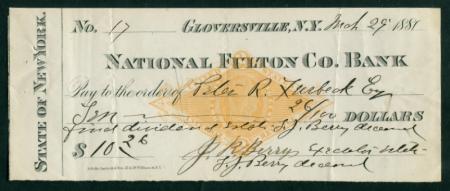 STATE OF NEW YORK.
No. 17 GLOVERSVILLE, N.Y. Mch 29 1881
NATIONAL FULTON CO. BANK
Pay to the order of Peter R. Furbeck Esq
Ten 26/100 DOLLARS
final dividend estate S.J. Berry deceased
$10 26 J. R. Berry Executor estate
S.J. Berry deceased